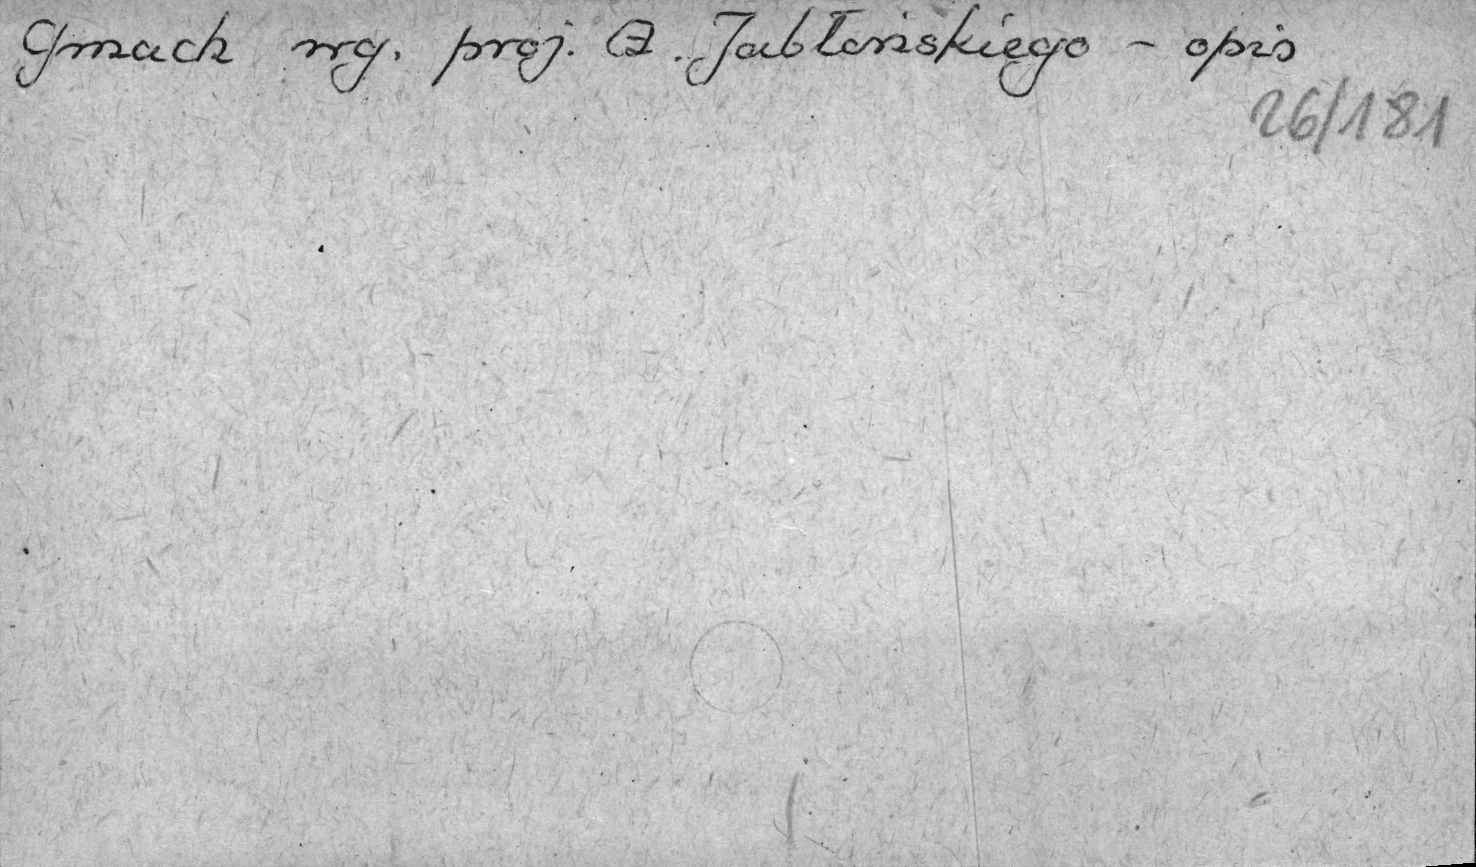 Gmach wg. proj. A. Jabłońskiego - opis
26/181